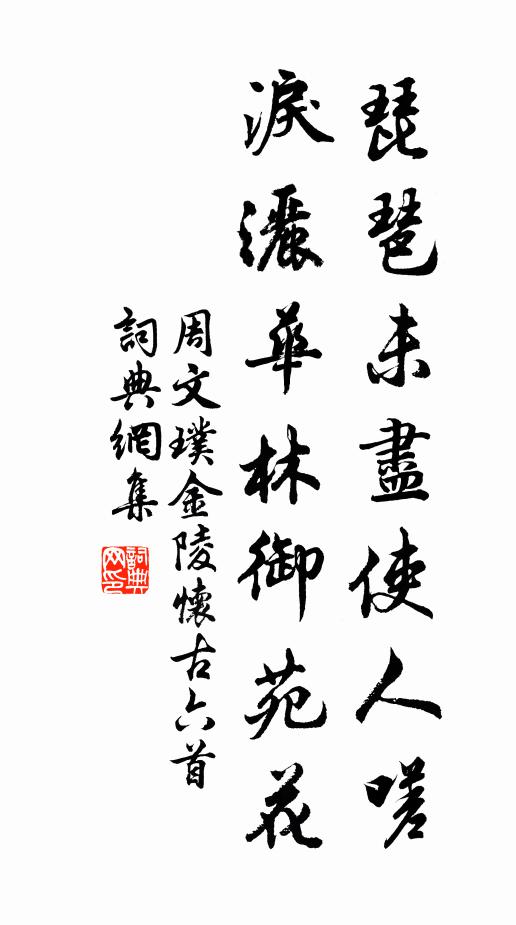 琵琶未盡使人嗟
淚灑華林御苑花
周文璞金陵懷古六首
詞典網集
詞典網印